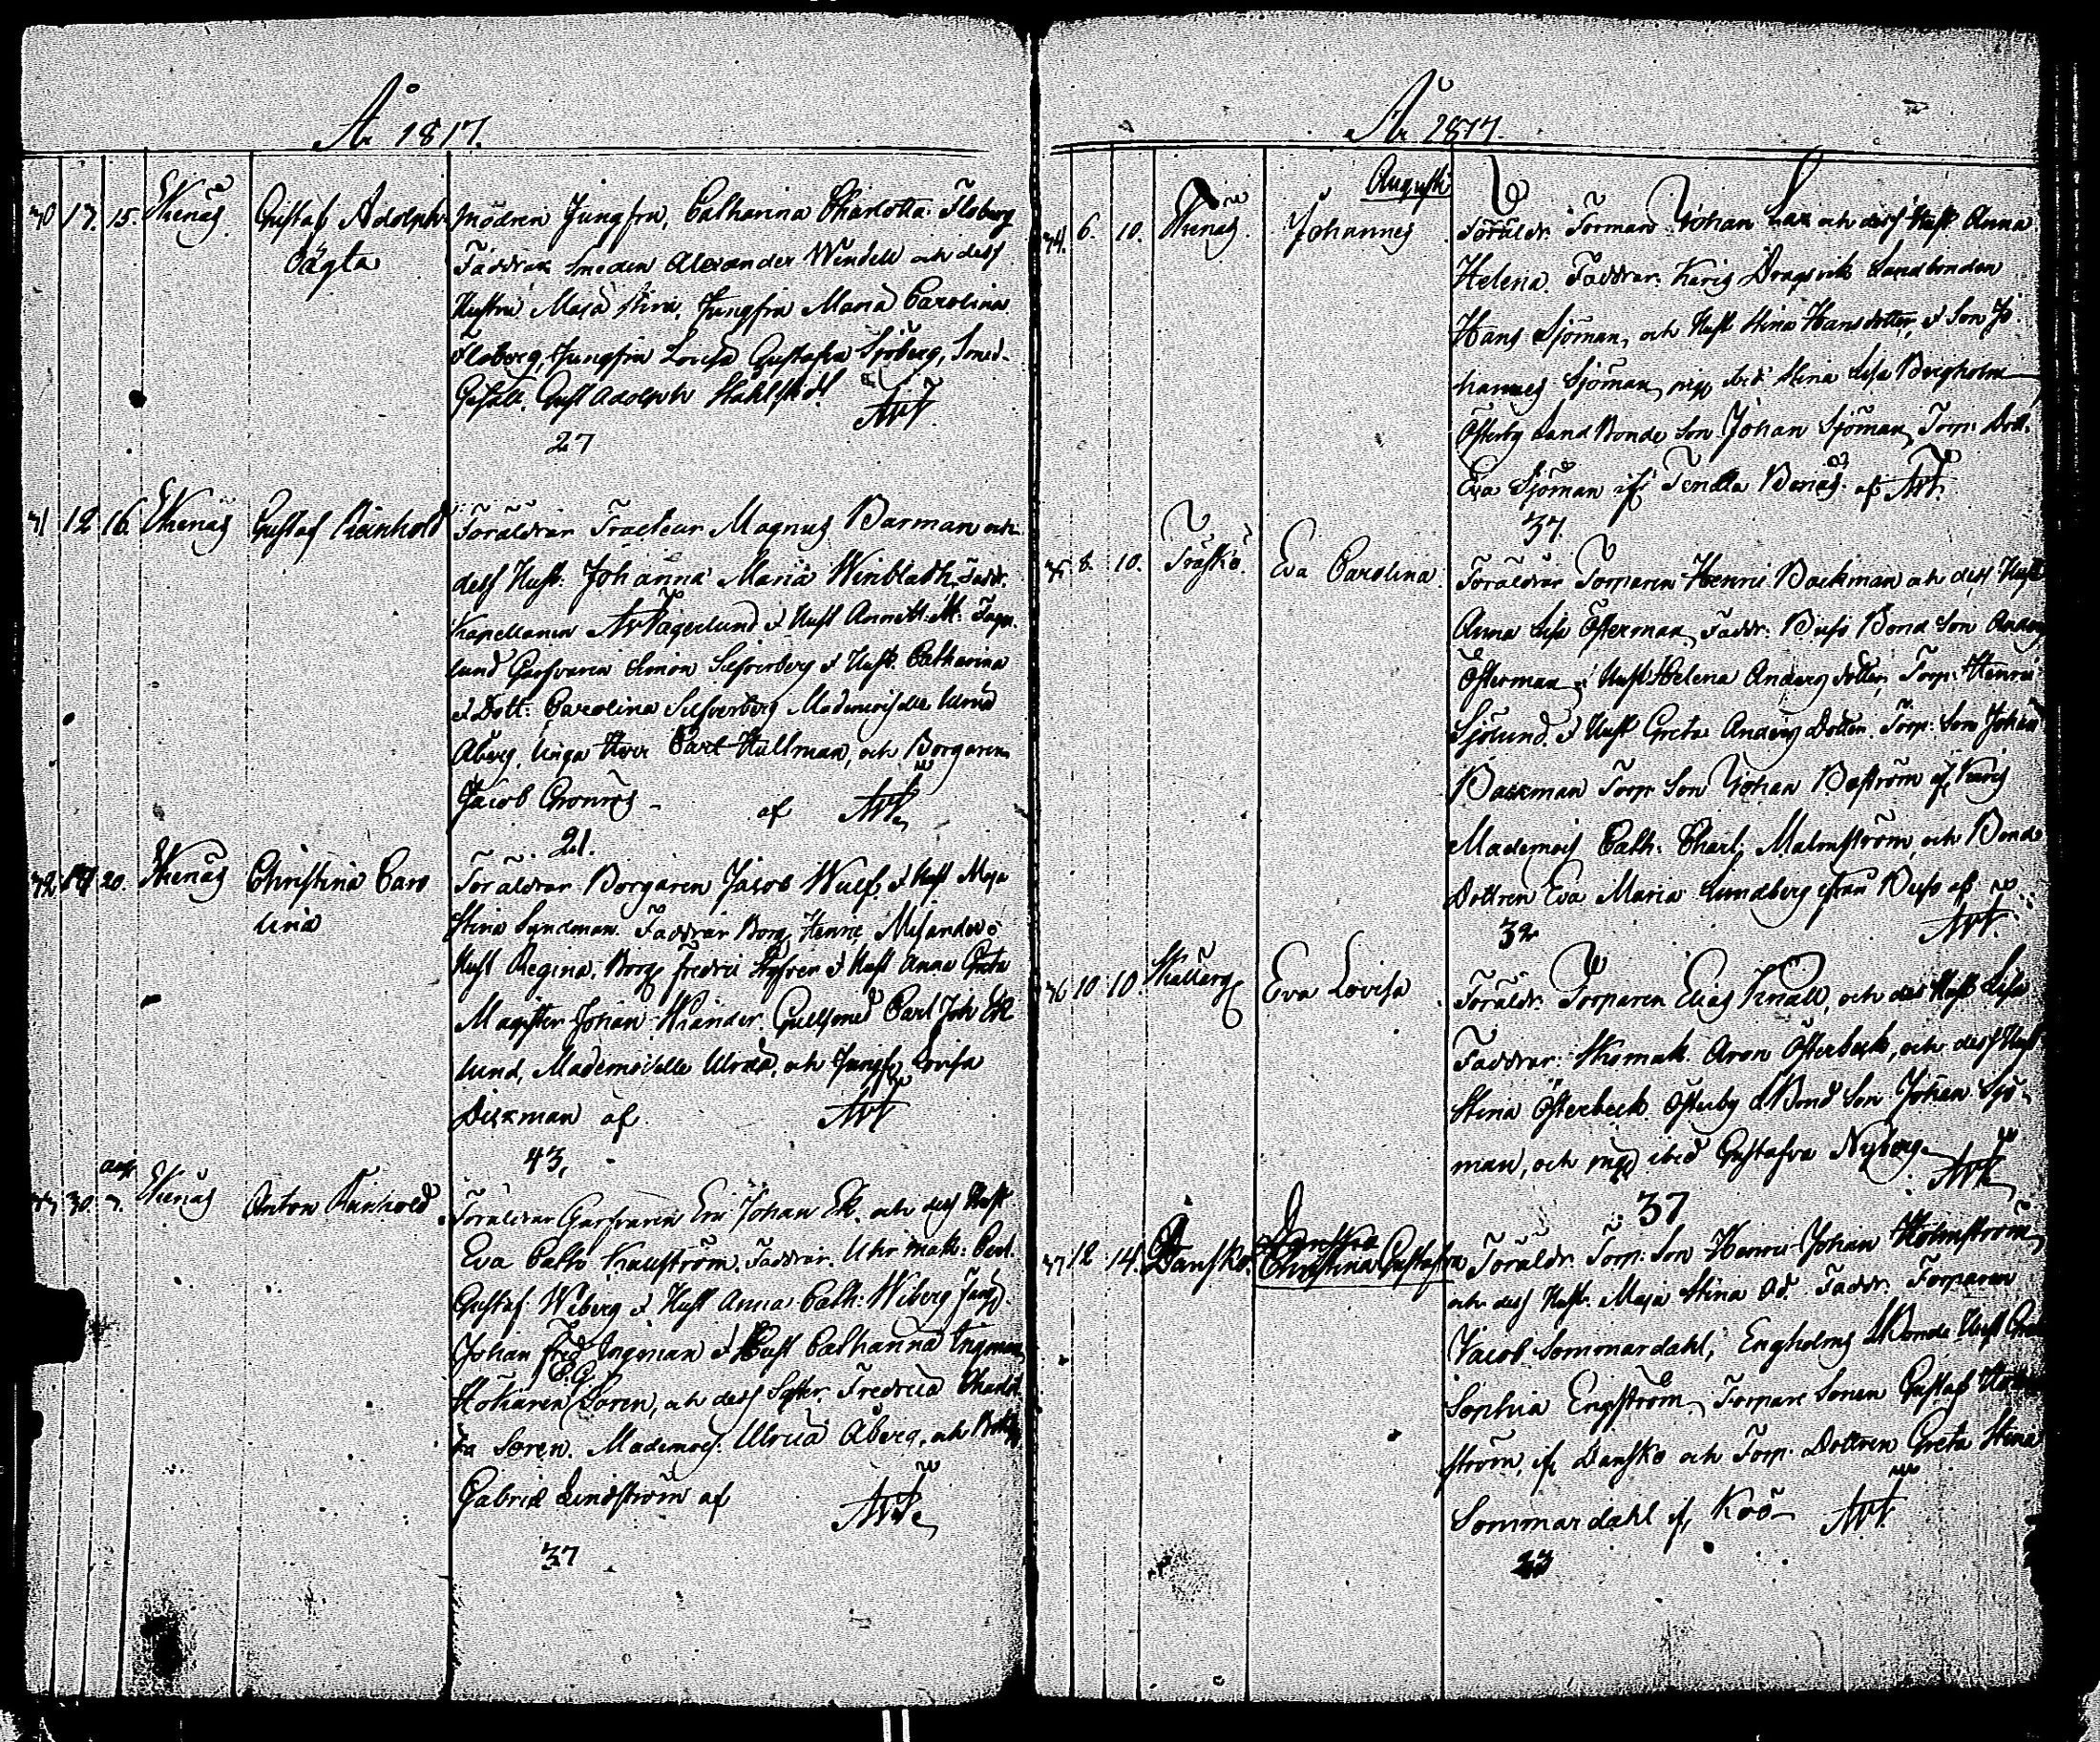 År 1817.
70 17. 15. Ekenäs Gustaf Adolph Modren Jungfru, Catharina Charlotta Floberg
Oägta Faddrar Smeden Alexander Windell och dess
Hustru Maja Stina, Jungfru Maria Carolina
Floberg, Jungfru Lovisa Gustafva Sjöberg, Smed-
Gesäll. Gust Adolph
27
71 12 16. Ekenäs Gustaf Reinhold Föräldrar Tracteur Magnus Barman och
dess Hust: Johanna Maria Winbladh, Fadd:
Kapellanen Fagerlund & Hust Annett: M: Fager
lund Garfvaren Simon Silfverberg & Hust: Catharina
& Dott: Carolina Silfverberg Mademoiselle Ulrica
Åberg, Unga Herr Carl Hällman, och Borgaren
Jacob Cronnäs - af
21.
72 20. Ekenäs Christina Caro Föräldrar Borgaren Jacob Wulff & Hust Maja
lina Stina Lundman. Faddrar Borg: Henric Misander &
Hust Regina. Borg: Fredric & Hust Anna Greta
Magister Johan Kiander. Gullsmed Carl Joh Ek
lund, Mademoiselle Ulrica, och Jungf: Lovisa
Dickman af
43,
Aug
30. 7. Ekenäs Anton Reinhold Föräldrar Garfvaren Eric Johan Ek. och dess Hust
Eva Cath: Faddrar. Uhr mak: Carl
Gustaf: Wiberg & Hust Anna Cath: Wiberg
Johan Fred Ingman & Hust Catharina Ingman
Hökaren C.G. Soren, och dess Syster Fredrica Charlot
ta Soren. Mademois: Ulrica Åberg, och
Gabriel Lindström af
37
År 1817.
Augusti
74. 6. 10. Ekenäs Johannes Föräldr: Forman Johan Lax och dess Hust Anna
Helena. Faddrar: Karis Dragsvik Landbonden
Hans Sjöman, och Hust Stina Hansdotter, & Son Jo
hannes Sjöman, pig: ibid: Stina Lisa Bergholm
Österby Land Bonde Son Johan Sjöman, Torp: Dott:
Eva Sjöman if: Tenala af
37.
8. 10. Träskö. Eva Carolina Föräldrar Torparen Henric Backman och dess Hust
Anna Lisa Österman, Faddr: Busö Bond Son Anders
Österman & Hust Helena Anders dotter, Torp: Henric
Sjölund & Hust Greta Anders Dotter. Torp: Son Johan
Backman Torp Son Johan Boström if: Karis
Mademois Cath: Charl: Malmström, och Bonde
Dottren Eva Maria Lundberg ifrån Busö af
32
76 10 10 Eva Lovisa Föräldr: Torparen Elias Knall, och dess Hust Lisa
Faddrar: Skomak: Aron Österbeck, och dess Hust
Stina Österbeck Österby LBond Son Johan Sjö-
man, och pig: ibid Gustafva Nyberg
37
77 12 14. Danskö. Christina Gustafva Föräldr: Torp: Son Henric Johan Holmström,
och dess Hust: Maja Stina Faddr: Torparen
Jacob Sommardahl, Engholms LBonde Hust
Sophia Engström, Torpare Sonen Gustaf Holm
ström, if: Danskö och Torp: Dottren Greta Stina
Sommardahl if: Kroö
23